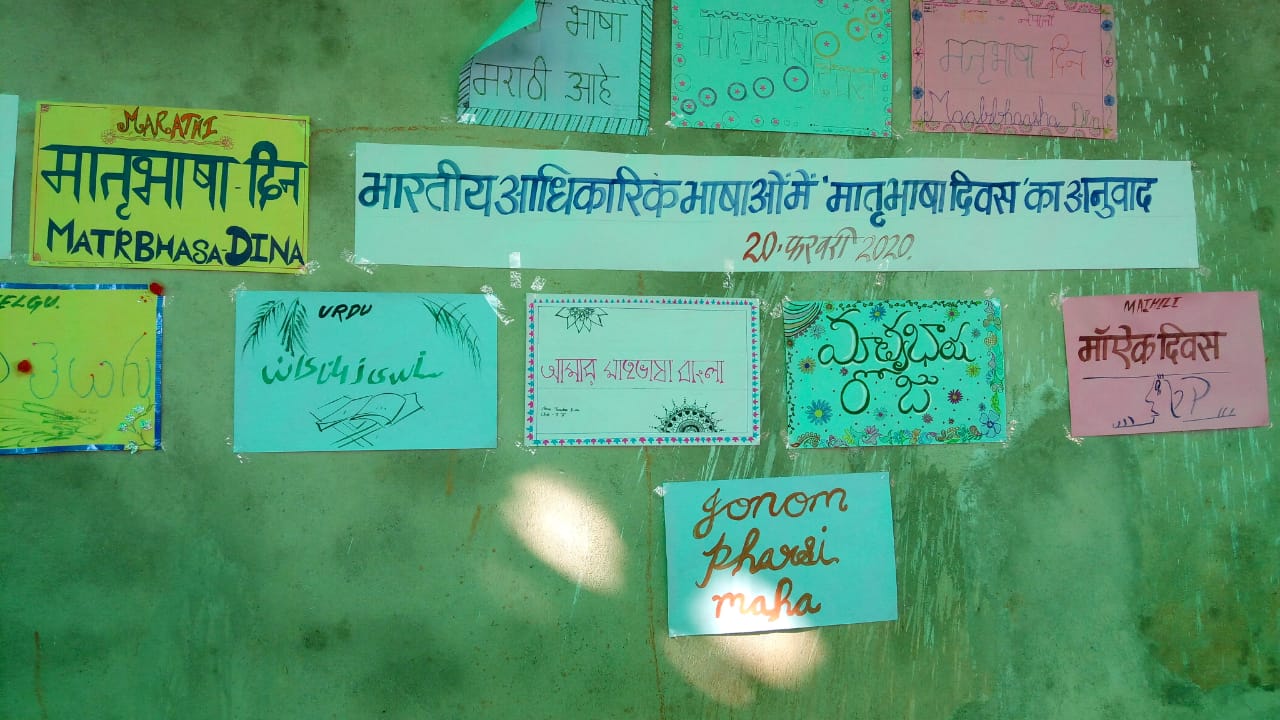 भाषा
मराठी आहे
मातृभाषा
नेपाली
मातृभाषा दिन
MARATHI
मातृभाषा-दिन
MATRBHASA-DINA
भारतीय आधिकारिक भाषाओं में 'मातृभाषा दिवस' का अनुवाद
20, फरवरी 2020.
ELGU.
తెలుగు
URDU
আমার মাতৃভাষা বাংলা
మాతృభాష
రోజు
MAITHILI
मॉऐक दिवस
Jonom
pharsi
maha